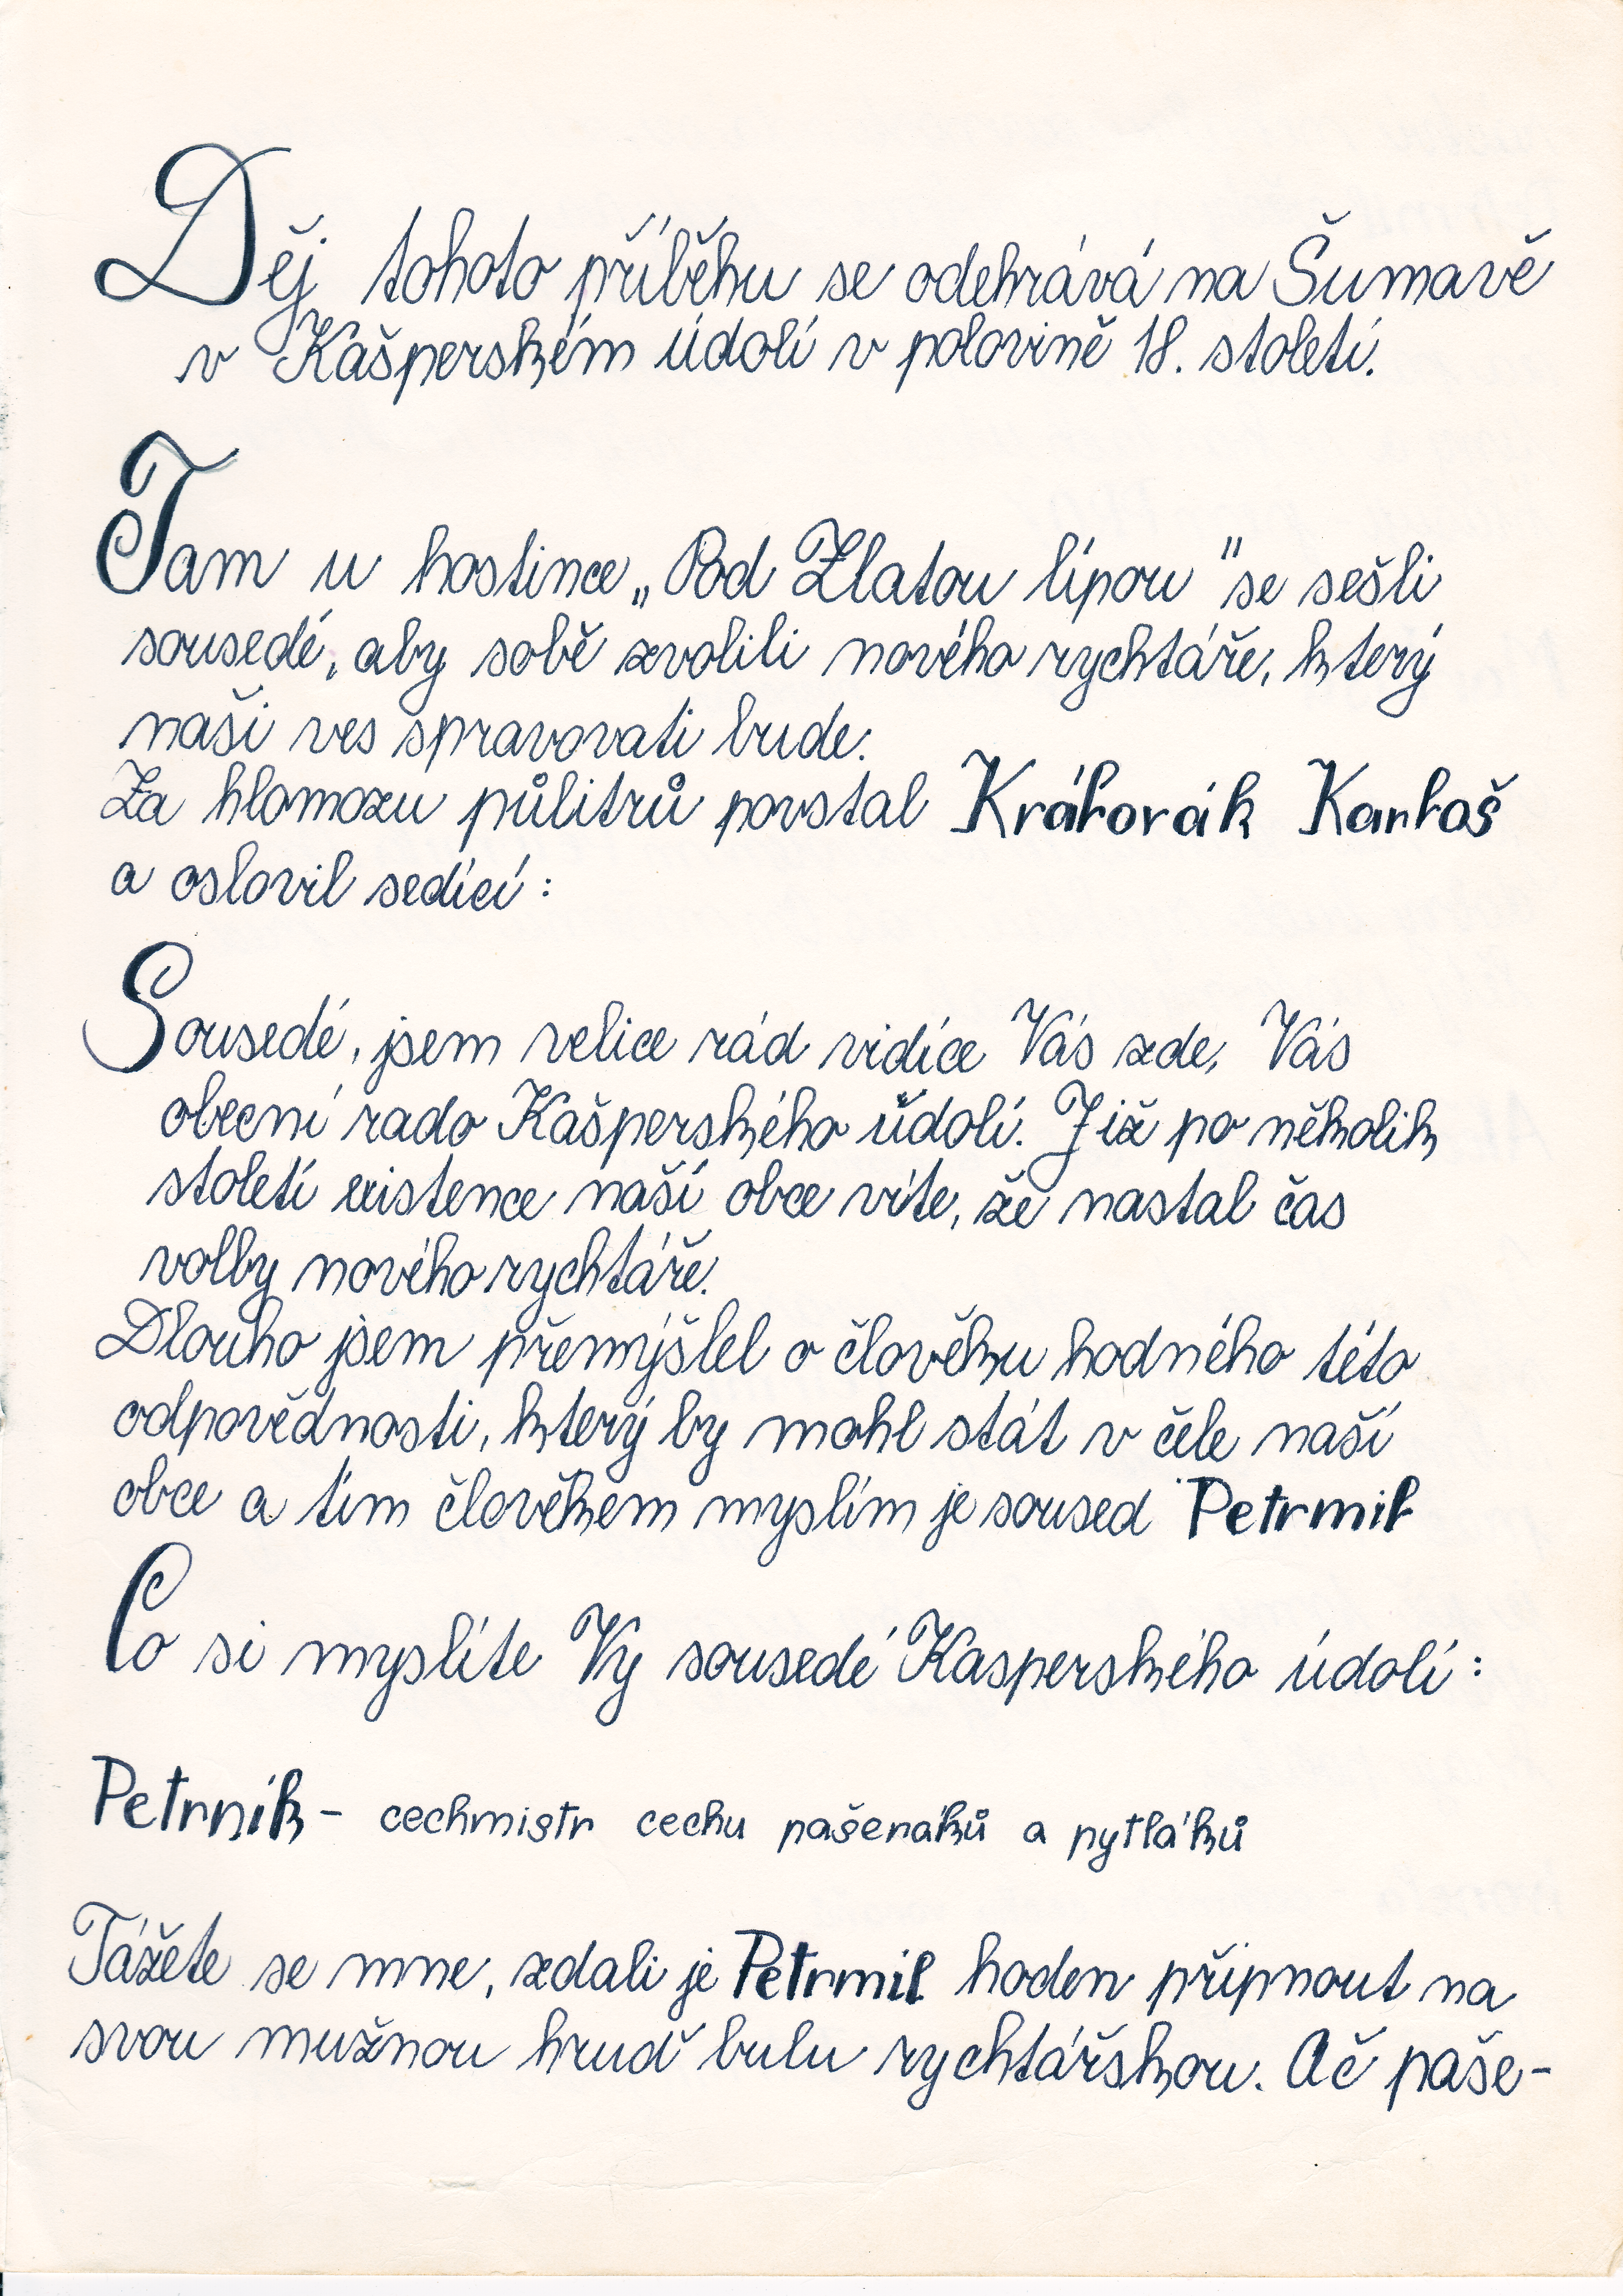 Děj tohoto příběhu se odehrává na Šumavě
v Kašperském údolí v polovině 18. století.
Tam u hostince „Pod Zlatou lípou" se sešli
sousedé, aby sobě zvolili nového rychtáře, který
naši ves spravovati bude.
Za hlomozu půlitrů povstal Královák Karloš
a oslovil sedící:
Sousedé, jsem velice rád vidíce Vás zde, Vás
obecní rado Kašperského údolí. Již po několik
století existence naší obce víte, že nastal čas
volby nového rychtáře.
Dlouho jsem přemýšlel o člověku hodného této
odpovědnosti, který by mohl stát v čele naší
obce a tím člověkem myslím je soused Petrmil
Co si myslíte Vy sousedé Kasperského údolí:
Petrník - cechmistr cechu pašeráků a pytláků
Tážete se mne, zdali je Petrmil hoden připnout na
svou mužnou hruď bulu rychtářskou. Ač paše-